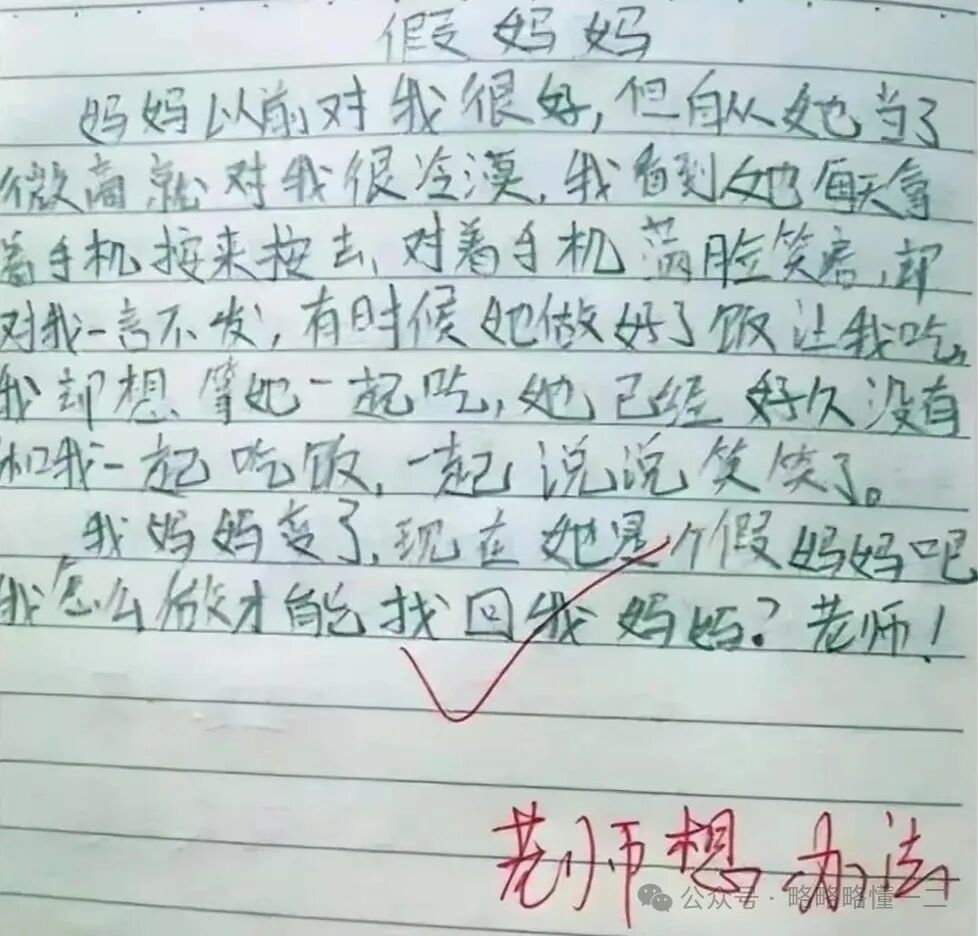 假妈妈
妈妈以前对我很好,但自从她当了
微商就对我很冷漠,我看到她每天拿
着手机按来按去,对着手机满脸笑容,却
对我一言不发,有时候她做好了饭让我吃,
我却想等她一起吃,她已经好久没有
和我一起吃饭,一起说说笑笑了。
我妈妈变了,现在她是个假妈妈吧
我怎么做才能找回我妈妈?老师!
老师想办法
公众号·略略略懂一二